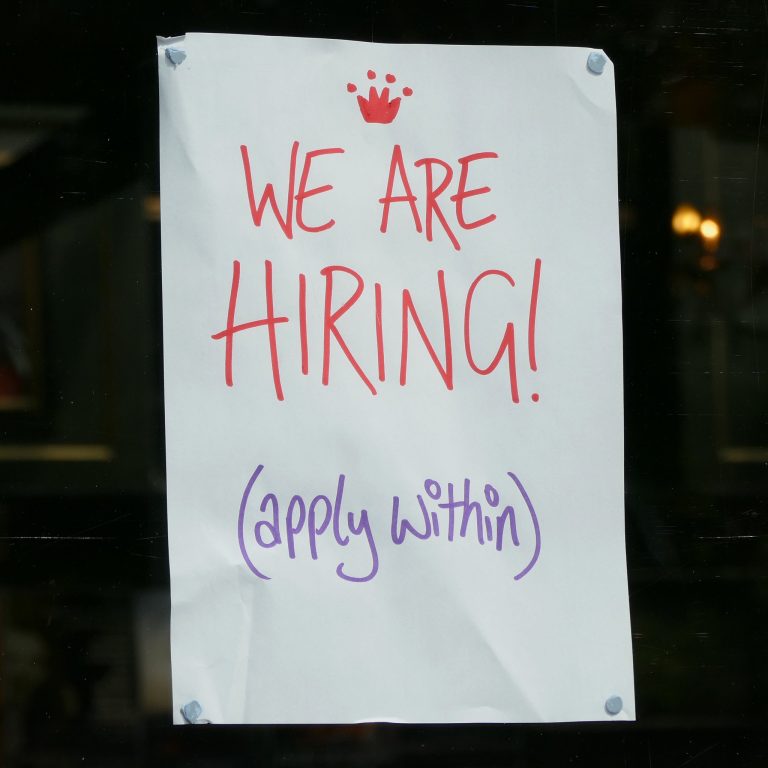 WE ARE
HIRING!
(apply within)